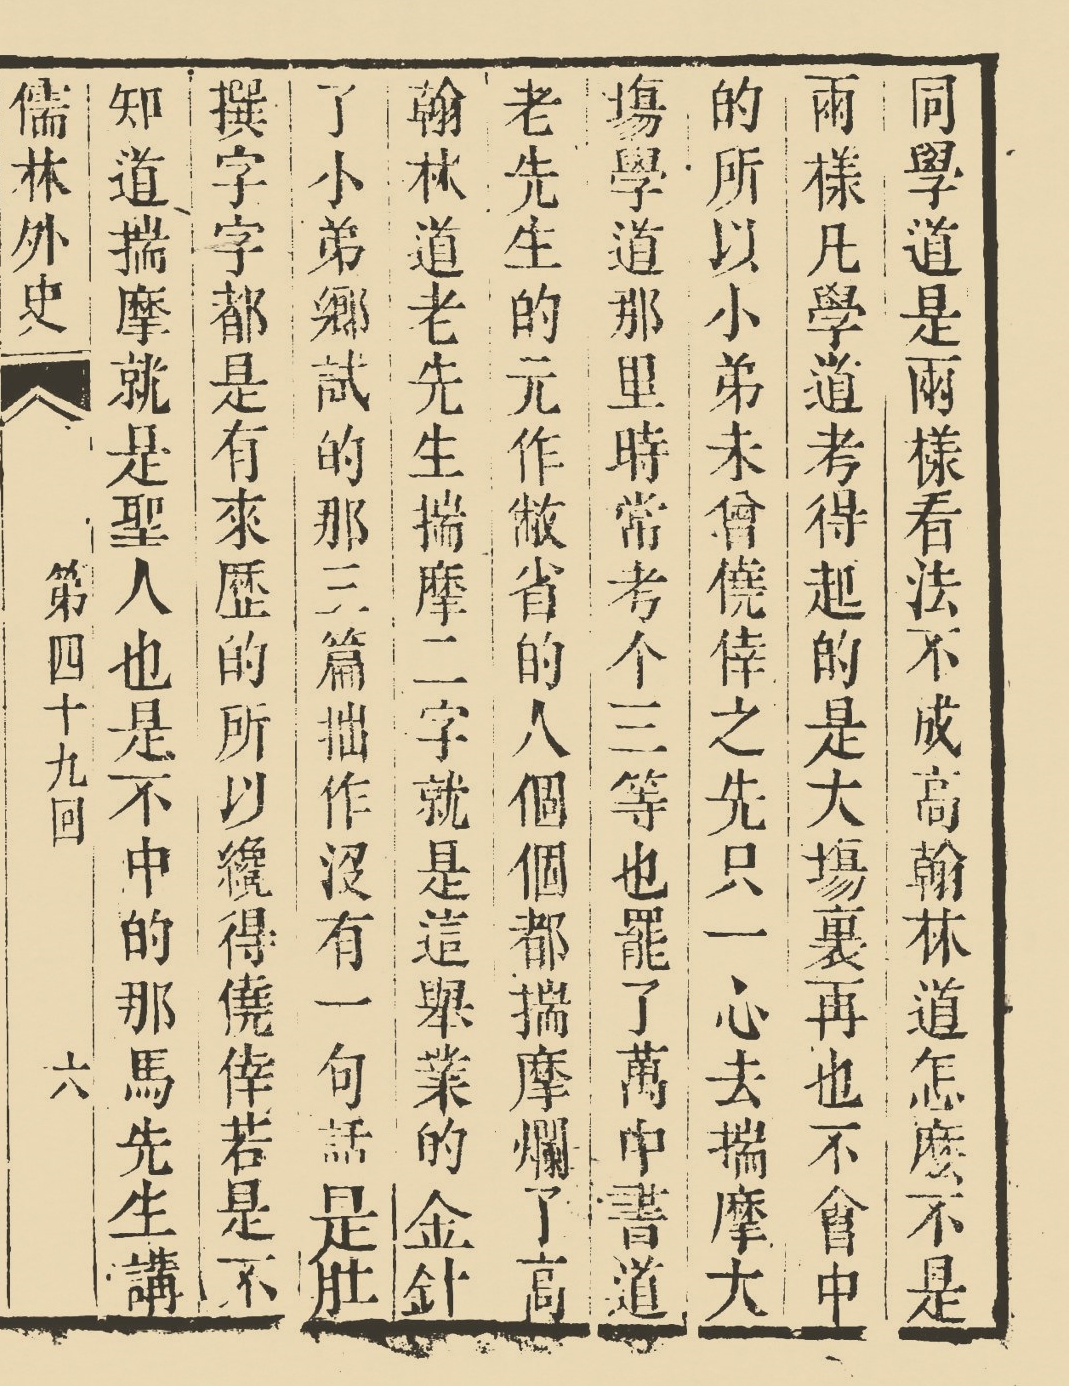 同學道是兩樣看法不成高翰林道怎麽不是
兩樣凡學道考得起的是大塲裏再也不會中
的所以小弟未曾僥倖之先只一心去揣摩大
塲學道那里時常考个三等也罷了萬中書道
老先生的元作敝省的人個個都揣摩爛了高
翰林道老先生揣摩二字就是這舉業的金針
了小弟鄉試的那三篇拙作沒有一句話是肚
撰字字都是有來歷的所以纔得僥倖若是不
知道揣摩就是聖人也是不中的那馬先生講
儒林外史 第四十九回 六